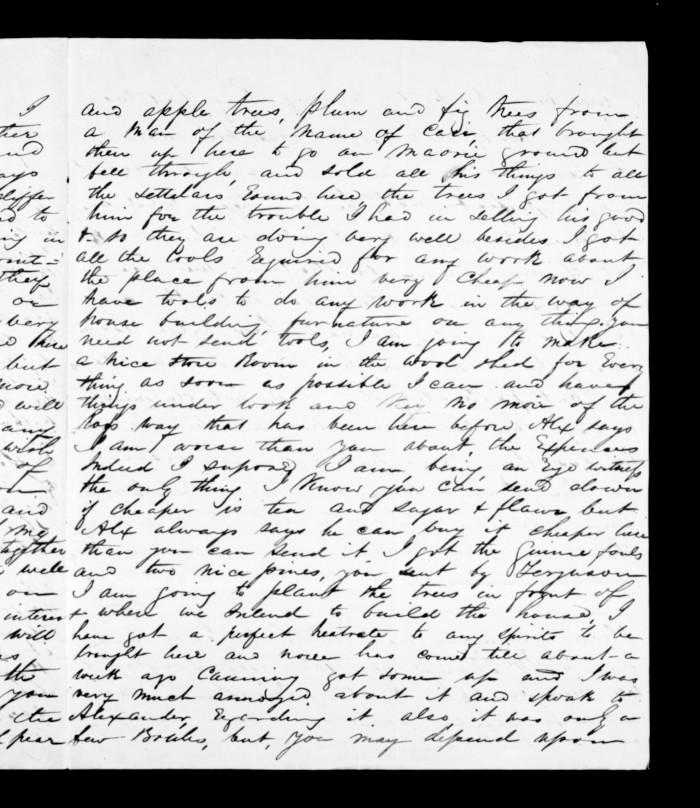 and apple trees, plum and fig trees from
a man of the name of Carr, that brought
them up here to go on Maorie ground but
fell through, and sold all his things to all
the settelars round here, the trees I got from
him for the trouble I had in selling his good
& so they are doing very well besides I got
all the tools required for any work about
the place from him very cheap now I
have tools to do any work in the way of
house building, furnature or any thing, you
need not send tools, I am going to make
a nice store Room in the wool shed for Every
thing as soon as possible I can and have
things under look and no more of the
way that has been here before, Alx says
I am worse than you about the Expences
Indeed I supose, I am being an eye witness
the only thing I know you can send down
if cheaper is tea and sugar & flour but
Alx always says he can buy it cheaper here
than you can send it I got the guinne fouls
and two nice pines, you sent by Ferguson
I am going to plant the trees in front of
where we Intend to build the house, I
have got a perfect heatrate to any spirits to be
brought here and none has come till about a
week ago Canning got some up and I was
very much annoyed about it and spoak to
Alexander, Egarding it, also it was only a
few Bottles, but, you may depend upon
I
ther
nd
ays
to
in
or
very
here
but
more
will
any
wish
of
and
together
well
on
interest
will
the
you
the